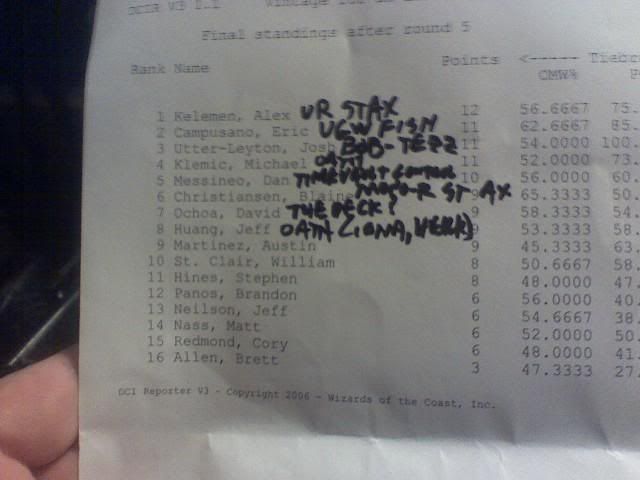 DCIR V3 1.1 Vintage for
Final standings after round 5
Rank Name Points <----- Tiebr
OMW%
1 Kelemen, Alex UR STAX 12 56.6667 75.
2 Campusano, Eric UGW FISH 11 62.6667 85.
3 Utter-Leyton, Josh BOB-TEZZ 11 54.0000 100.
4 Klemic, Michael OATH 11 52.0000 73.
5 Messineo, Dan TIME VAULT CONTROL 10 56.0000 60.
6 Christiansen, Blaine MONO-R STAX 9 65.3333 50.
7 Ochoa, David THE DECK! 9 58.3333 54.
8 Huang, Jeff OATH (IONA, 9 53.3333 58.
9 Martinez, Austin 9 45.3333 63.
10 St. Clair, William 8 50.6667 58.
11 Hines, Stephen 8 48.0000 47.
12 Panos, Brandon 6 56.0000 40.
13 Neilson, Jeff 6 54.6667 38.
14 Nass, Matt 6 52.0000 50.
15 Redmond, Cory 6 48.0000 41.
16 Allen, Brett 3 47.3333 27.
DCI Reporter V3 - Copyright 2006 - Wizards of the Coast, Inc.